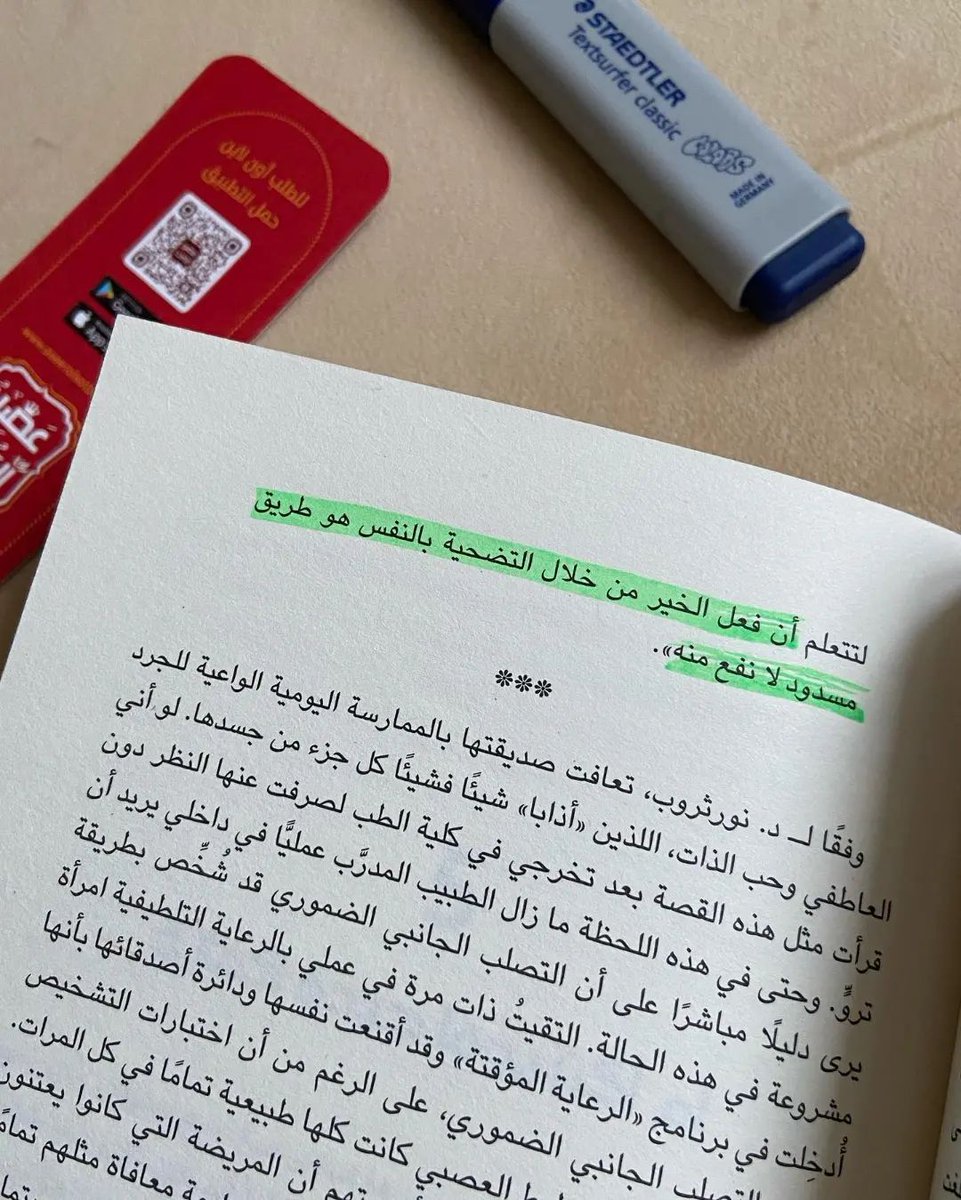 STAEDTLER
Textsurfer classic
MADE IN
GERMANY
للطلب أون لاين
حمل التطبيق
لتتعلم أن فعل الخير من خلال التضحية بالنفس هو طريق
مسدود لا نفع منه».
***
وفقًا لـ د. نورثروب، تعافت صديقتها بالممارسة اليومية الواعية للجرد
العاطفي وحب الذات، اللذين «أذابا» شيئًا فشيئًا كل جزء من جسدها. لو أني
قرأت مثل هذه القصة بعد تخرجي في كلية الطب لصرفت عنها النظر دون
تروٍّ. وحتى في هذه اللحظة ما زال الطبيب المدرَّب عمليًّا في داخلي يريد أن
يرى دليلًا مباشرًا على أن التصلب الجانبي الضموري قد شُخِّص بطريقة
مشروعة في هذه الحالة. التقيتُ ذات مرة في عملي بالرعاية التلطيفية امرأة
أُدخِلت في برنامج «الرعاية المؤقتة» وقد أقنعت نفسها ودائرة أصدقائها بأنها
التصلب الجانبي الضموري، على الرغم من أن اختبارات التشخيص
العصبي كانت كلها طبيعية تمامًا في كل المرات.
أن المريضة التي كانوا يعتنون
معافاة مثلهم تمامًا